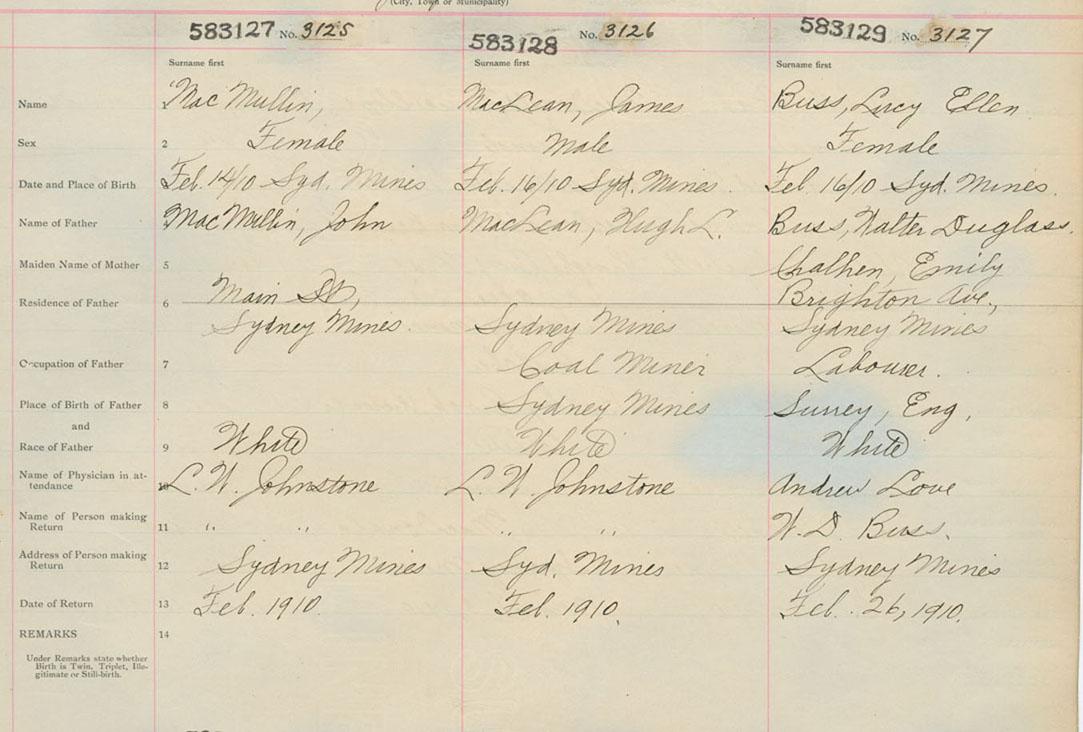 (City, Town or Municipality)
583127 No. 3125 583128 No. 3126 583129 No. 3127
Surname first Surname first Surname first
Name 1 MacMullin, MacLean, James Buss, Lucy Ellen
Sex 2 Female Male Female
Date and Place of Birth Feb. 14/10 Syd. Mines Feb. 16/10 Syd. Mines. Feb. 16/10 Syd. Mines.
Name of Father MacMullin, John MacLean, Hugh L. Buss, Walter Duglass.
Maiden Name of Mother 5 Chalhen, Emily
Residence of Father 6 Main St, Brighton Ave.,
Sydney Mines. Sydney Mines Sydney Mines
Occupation of Father 7 Coal Miner Labourer.
Place of Birth of Father 8 Sydney Mines Surrey, Eng.
and
Race of Father 9 White White White
Name of Physician in at-
tendance 10 L. W. Johnstone L. W. Johnstone Andrew Love
Name of Person making
Return 11 " " " " W. D. Buss.
Address of Person making
Return 12 Sydney Mines Syd. Mines Sydney Mines
Date of Return 13 Feb. 1910. Feb. 1910. Feb. 26, 1910.
REMARKS 14
Under Remarks state whether
Birth is Twin, Triplet, Ille-
gitimate or Still-birth.